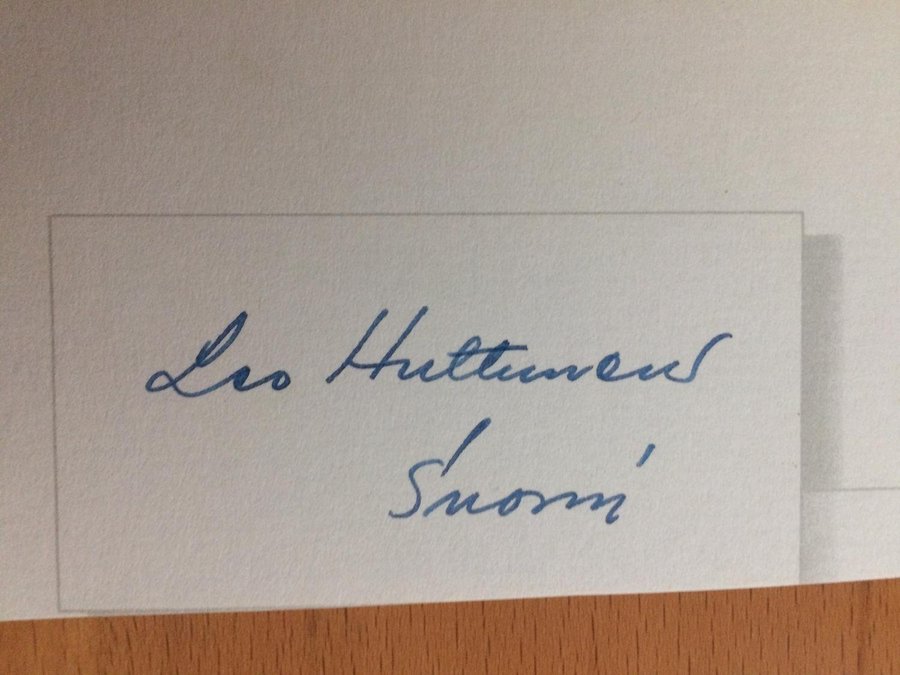 Leo Huttunen
Suomi